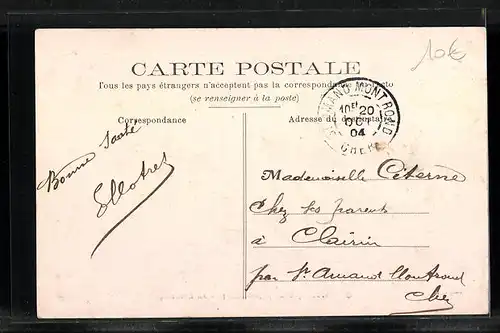 10€
CARTE POSTALE
Tous les pays étrangers n'acceptent pas la correspondance au recto
(se renseigner à la poste)
Correspondance
Adresse du destinataire
MAND-MONT ROND
10E 20
OCT
04
CHER
Bonne Santé
Mademoiselle Citerne
Chez ses parents
à
par St Amand Montrond
Cher